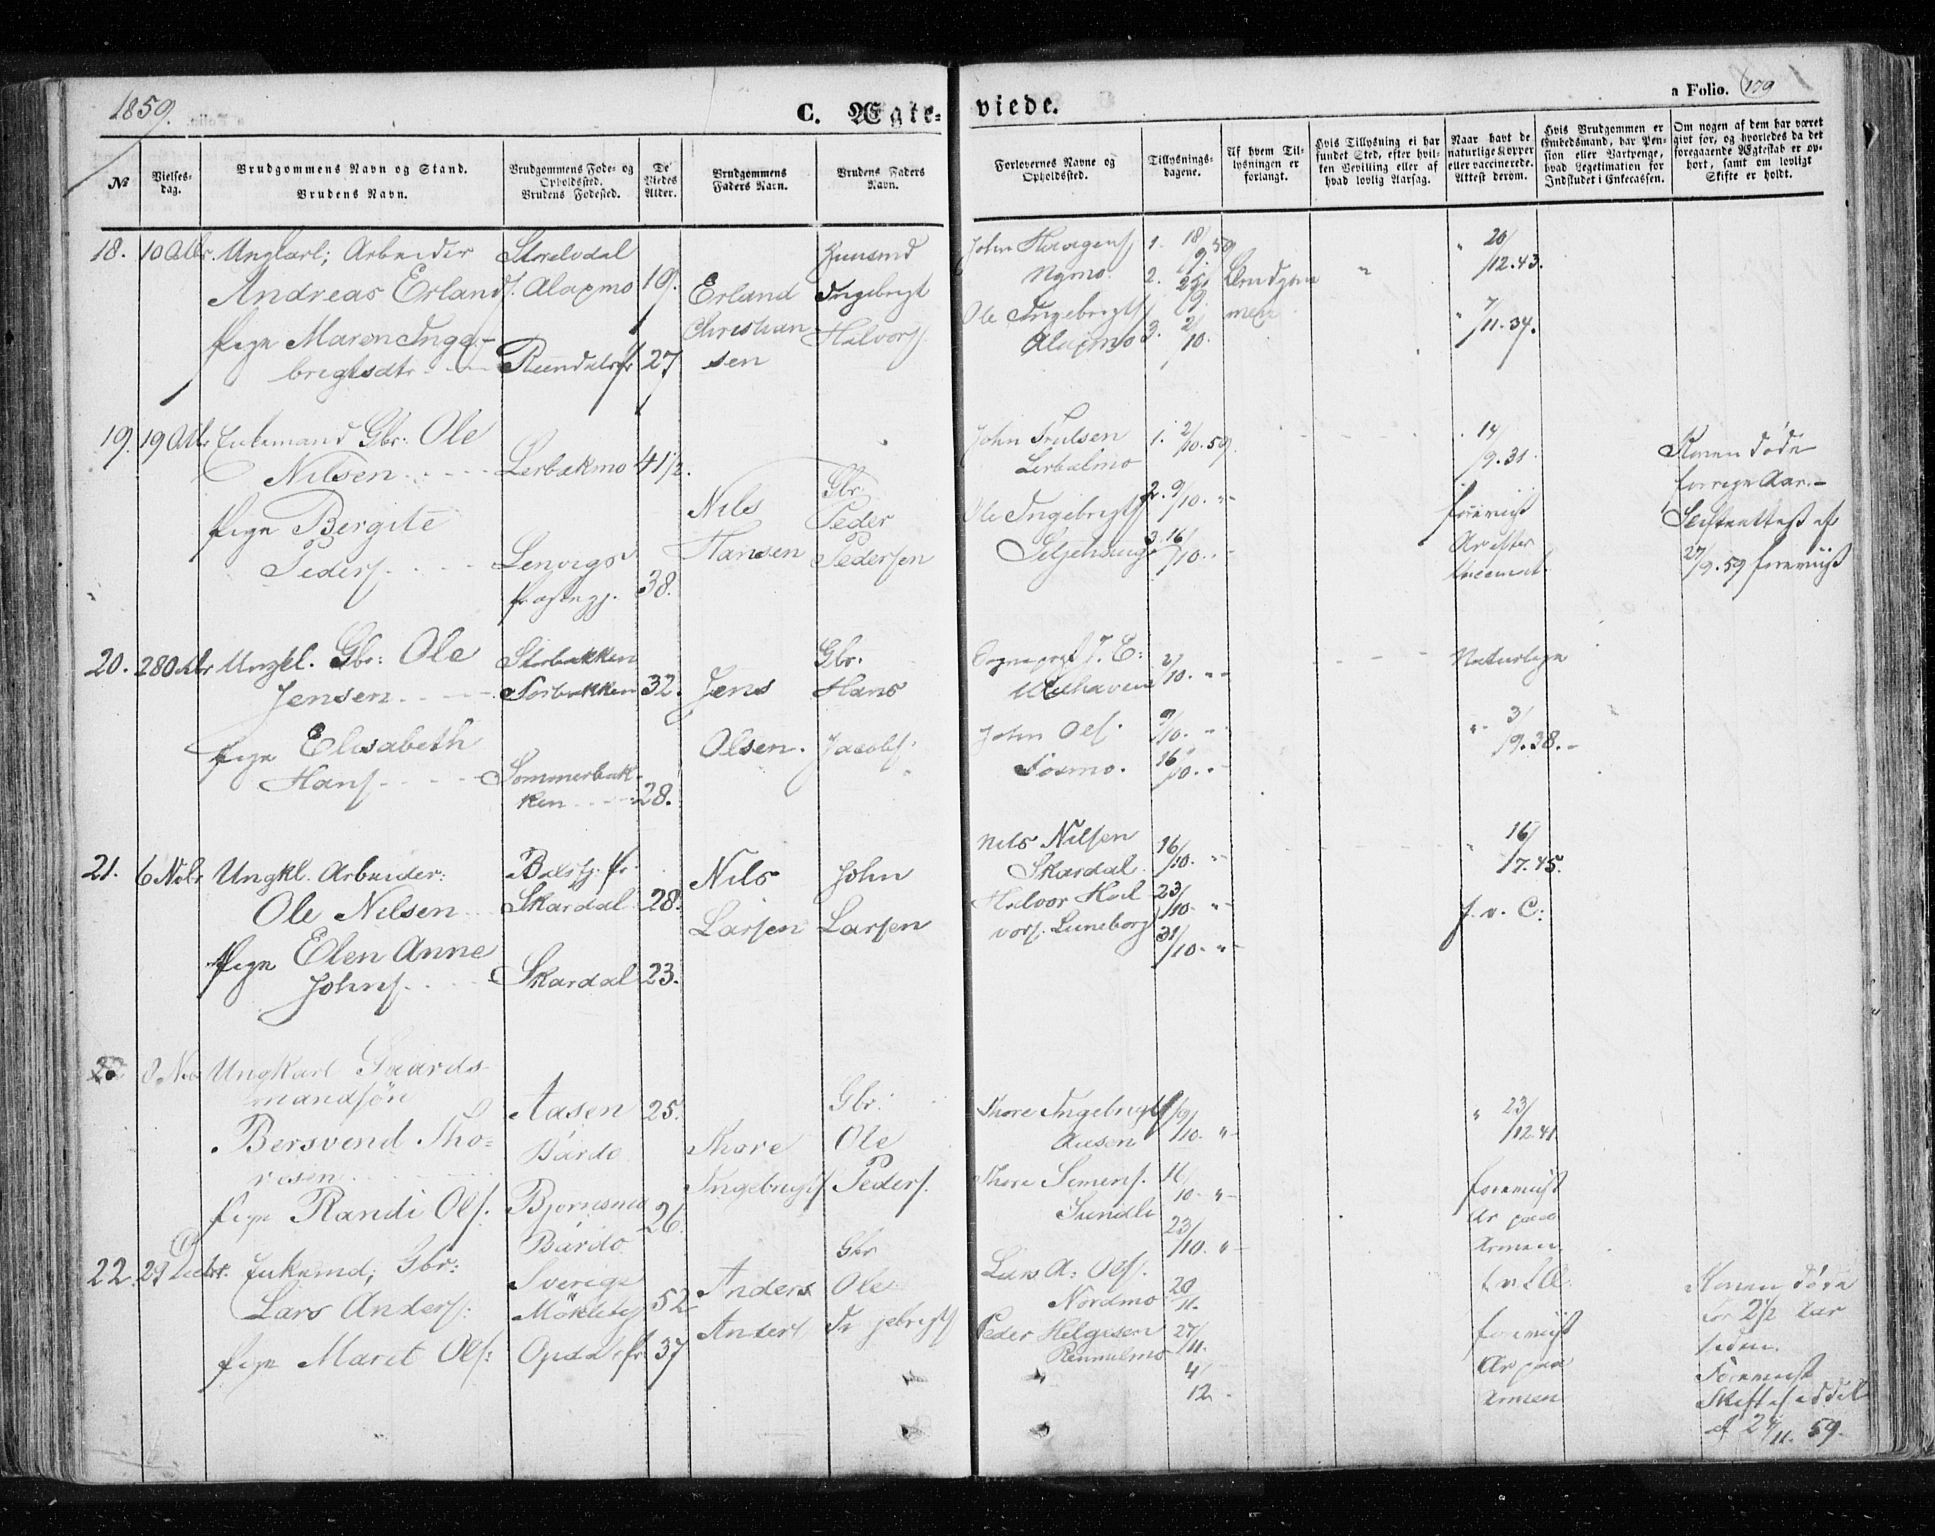 1859.
C. Ægte-
viede.
a Folio. 179
№
Vielses-
dag.
Brudgommens Navn og Stand.
Brudens Navn.
Brudgommens Føde- og
Opholdssted.
Brudens Fødested.
De
Viedes
Alder.
Brudgommens
Faders Navn.
Brudens Faders
Navn.
Forlovernes Navne og
Opholdssted.
Tillysnings-
dagene.
Af hvem Til-
lysningen er
forlangt.
Hvis Tillysning ei har
fundet Sted, efter hvil-
ken Bevilling eller af
hvad lovlig Aarsag.
Naar havt de
naturlige Kopper
eller vaccinerede.
Attest derom.
Hvis Brudgommen er
Embedsmand, har Pen-
sion eller Vartpenge,
hvad Legetimation for
Indskudet i Enkecassen.
Om nogen af dem har været
givt før, og hvorledes da det
foregaaende Ægteskab er op-
hørt, samt om lovligt
Skifte er holdt.
18. 10 Ungkarl; Arbeider
Andreas Erlands. 19.
Pige Maren Inge-
brigtsdtr 27
Erland
Christian
sen
Huusmd
Ingebrigt
Halvors.
Nymo
Ole Ingebrigts
1. 18/9. 59
2. 25/9.
3. 2/10.
20/12. 43.
7/11. 34.
19. 19 Enkemand Gbr: Ole
Nilsen Lerbakmo 41 1/2.
Pige Bergite
Peders. Lenvigs
Præstegj. 38.
Nils
Hansen
Gbr.
Peder
Pedersen
John Trulsen
Lerbakmo
Ole Ingebrigts
1. 2/10. 59.
2. 9/10. "
3. 16/10. "
14/9. 31.
forevist
Ar efter
Konen døde
forrige Aar.
Skifteattest af
27/9. 59 forevist
20. 28 Ungkl. Gbr: Ole
Jensen 32.
Pige Elisabeth
Hans. Sommerbak-
ken 28.
Jens
Olsen.
Gbr.
Hans
Jacobs.
Sognepræst J. E:
Welhaven
John Ols.
Fosmo.
2/10. "
9/10. "
16/10. "
Naturlige
3/9. 38.
21. 6 Ungkl. Arbeider:
Ole Nilsen Skardal 28.
Pige Elen Anne
Johns. Skardal 23.
Balsfj. Pr.
Nils
Larsen
John
Larsen
Nils Nilsen
Skardal.
Halvor Hal
vors. Luneborg
16/10. "
23/10. "
31/10. "
16/7. 45.
f. v. C:
8 Ungkarl Gaards-
mandsøn
Bersvend Tho-
resen
Aasen 25.
Bardo
Pige Randi Ols. 26.
Bardo
Thore
Ingebrigts
Gbr.
Ole
Peders.
Thore Ingebrigts
Aasen
Thore Simens.
Sundli
9/10. "
16/10. "
23/10. "
23/12. 41
forevist
Ar paa
Armen
22. 29 Enkemd; Gbr:
Lars Anders: 52
Sverige
Pige Maret Ols: Opdal Pr 37
Anders
Anders
Gbr
Ole
Ingebrigts
Lars A: Ols.
Nordmo
Peder Helgesen
20/11.
27/11.
4/12.
forevist
Ar paa
Armen
Konen døde
for 2 1/2 Aar
siden.
Forevist
Skifteseddel
af 24/11. 59.